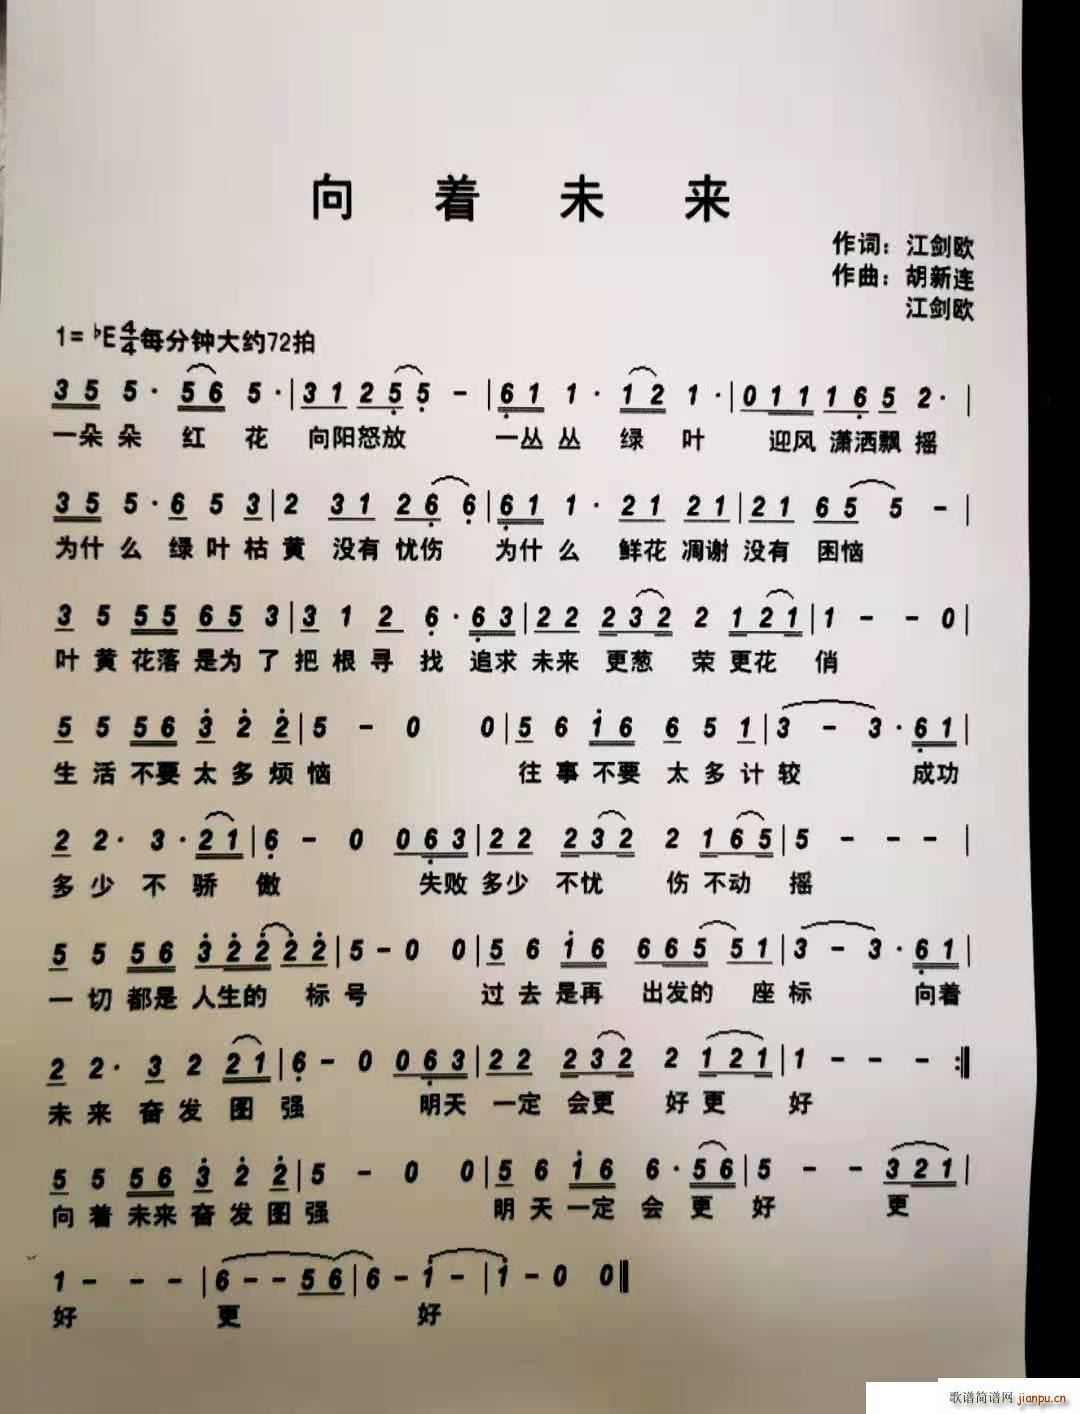 向着未来
作词：江剑欧
作曲：胡新连
江剑欧
1=♭E 4/4 每分钟大约72拍
3 5 5· 5 6 5· | 3 1 2 5 5 - | 6 1 1· 1 2 1· | 0 1 1 1 6 5 2· |
一朵 朵 红 花 向阳怒放 一丛丛 绿 叶 迎风 潇洒飘 摇
3 5 5· 6 5 3 | 2 3 1 2 6 6 | 6 1 1· 2 1 2 1 | 2 1 6 5 5 - |
为什 么 绿 叶 枯 黄 没有 忧伤 为什 么 鲜花 凋谢 没有 困恼
3 5 5 5 6 5 3 | 3 1 2 6· 6 3 | 2 2 2 3 2 2 1 2 1 | 1 - - 0 |
叶 黄 花落 是为 了 把 根 寻 找 追求 未来 更葱 荣 更花 俏
5 5 5 6 3 2 2 | 5 - 0 0 | 5 6 1 6 6 5 1 | 3 - 3· 6 1 |
生 活 不要 太 多 烦 恼 往 事 不要 太 多 计 较 成功
2 2· 3· 2 1 | 6 - 0 0 6 3 | 2 2 2 3 2 2 1 6 5 | 5 - - - |
多 少 不 骄 傲 失败 多少 不忧 伤 不动 摇
5 5 5 6 3 2 2 2 2 | 5 - 0 0 | 5 6 1 6 6 6 5 5 1 | 3 - 3· 6 1 |
一 切 都是 人生的 标 号 过 去 是再 出发的 座 标 向着
2 2· 3 2 2 1 | 6 - 0 0 6 3 | 2 2 2 3 2 2 1 2 1 | 1 - - - :‖
未 来 奋 发 图 强 明天 一定 会更 好 更 好
5 5 5 6 3 2 2 | 5 - 0 0 | 5 6 1 6 6· 5 6 | 5 - - 3 2 1 |
向 着 未来 奋 发 图 强 明 天 一定 会 更 好 更
1 - - - | 6 - - 5 6 | 6 - 1 - | 1 - 0 0 ‖
好 更 好
歌谱简谱网 jianpu.cn